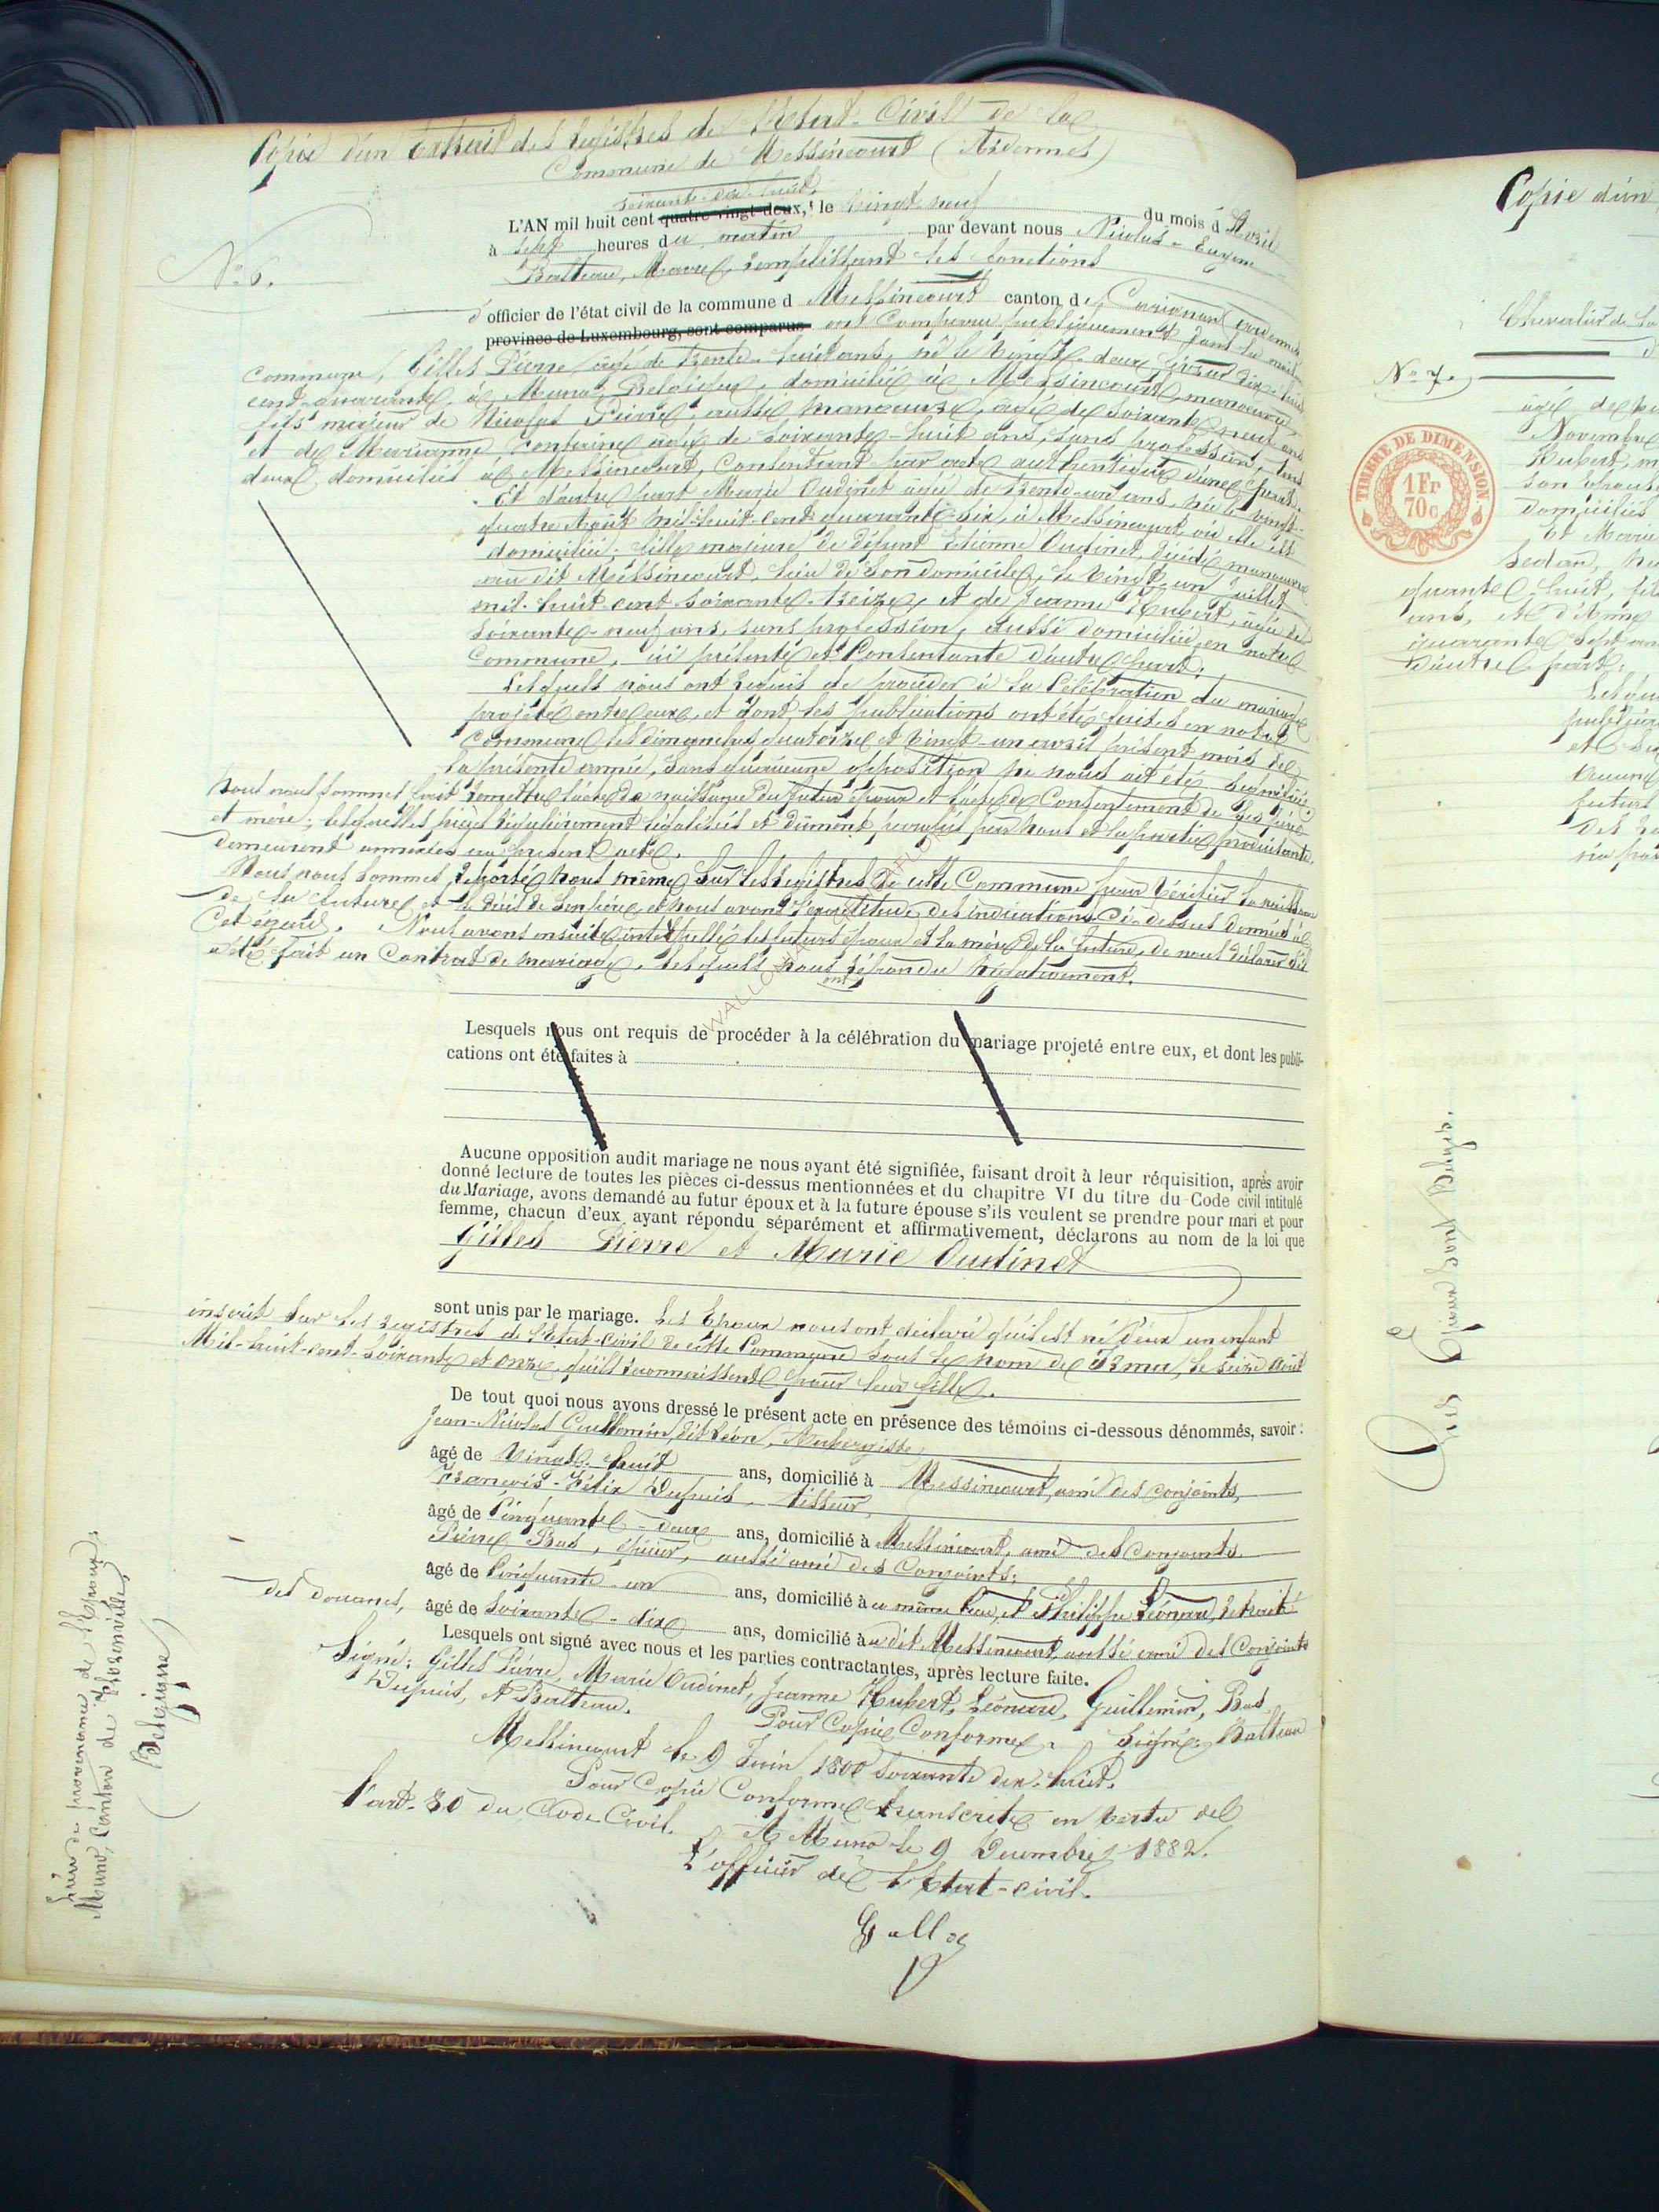 Copie d'un Extrait des registres de l'Etat-Civil de la
Commune de Messincourt (Ardennes)
soixante-dix-huit,
L'AN mil huit cent quatre-vingt-deux, le vingt-neuf du mois d'Avril
à sept heures du matin par devant nous Nicolas-Eugène
Balteau, Maire, remplissant les fonctions
N° 6.
d'officier de l'état civil de la commune d Messincourt canton de Carignan ardennes
province de Luxembourg, sont comparus ont comparu publiquement dans la maison
commune, Gilles Pierre âgé de trente-huit ans, né le vingt-deux février dix-huit
cent-quarante, à Muno, Belgique, domicilié à Messincourt, manœuvre,
fils majeur de Nicolas Pierre, aussi manœuvre, âgé de soixante-neuf ans
et de Marianne Fontaine âgée de soixante-huit ans, sans profession, tous
deux domiciliés à Messincourt, consentant par acte authentique d'une part.
Et d'autre part Marie Oudinet âgée de trente-un ans, née le vingt-
quatre Août mil-huit-cent quarante-six, à Messincourt, où elle est
domiciliée, fille majeure de défunt Etienne Oudinet, décédé manœuvre
au dit Messincourt, lieu de son domicile, le vingt-un Juillet
mil-huit cent soixante-treize, et de Jeanne Hubert, âgée de
soixante-neuf ans, sans profession, aussi domiciliée en notre
commune, ici présente et consentante d'autre part.
Lesquels nous ont requis de procéder à la célébration du mariage
projeté entre eux, et dont les publications ont été faites en notre
commune les dimanches quatorze et vingt-un avril présent mois de
la présente année, sans qu'aucune opposition ne nous ait été signifiée.
Nous nous sommes fait remettre l'acte de naissance du futur époux et l'acte de consentement de ses père
et mère; lesquelles pièces régulièrement légalisées et dûment paraphées par nous et la partie produisante
demeurent annexées au présent acte.
Nous nous sommes reporté nous même sur les registres de cette Commune pour vérifier la naissance
de la future et le décès de son père, et nous avons l'exactitude des indications ci-dessus données à
cet égard. Nous avons ensuite interpellé les futurs époux et la mère de la future, de nous déclarer s'il
a été fait un Contrat de mariage, lesquels nous ont répondu négativement.
Lesquels nous ont requis de procéder à la célébration du mariage projeté entre eux, et dont les publi-
cations ont été faites à
Aucune opposition audit mariage ne nous ayant été signifiée, faisant droit à leur réquisition, après avoir
donné lecture de toutes les pièces ci-dessus mentionnées et du chapitre VI du titre du Code civil intitulé
du Mariage, avons demandé au futur époux et à la future épouse s'ils veulent se prendre pour mari et pour
femme, chacun d'eux ayant répondu séparément et affirmativement, déclarons au nom de la loi que
Gilles Pierre et Marie Oudinet
sont unis par le mariage. Les Epoux nous ont déclaré qu'il est né d'eux un enfant
inscrit sur les registres de l'Etat-civil de cette Commune sous le nom de Irma, le seize Août
Mil-huit-cent-soixante et onze, qu'ils reconnaissent pour leur fille.
De tout quoi nous avons dressé le présent acte en présence des témoins ci-dessous dénommés, savoir :
Jean-Nicolas Guillemin, dit Léon, Aubergiste,
âgé de Vingt-huit ans, domicilié à Messincourt, ami des conjoints,
François-Félix Dupuis, tisseur,
âgé de Cinquante-deux ans, domicilié à Messincourt, ami des conjoints
Pierre Bas, épicier, aussi ami des Conjoints;
âgé de Cinquante-un ans, domicilié à ce même lieu, et Philippe Léonard, retraité
des douanes, âgé de soixante-dix ans, domicilié au dit Messincourt, aussi ami des Conjoints
Lesquels ont signé avec nous et les parties contractantes, après lecture faite.
Signé: Gilles Pierre, Marie Oudinet, Jeanne Hubert, Léonard, Guillemin, Bas
Dupuis, et Balteau.
Pour Copie Conforme. Signé: Balteau
Messincourt le 9 Juin 1800 soixante dix-huit.
Pour Copie Conforme transcrite en vertu de
l'art. 80 du Code Civil.
A Muno le 9 Décembre 1882.
L'officier de l'Etat-civil.
Lieu de provenance de l'Epoux:
Muno, Canton de Florenville,
(Belgique)
Copie d'un
Chevalier de la
N° 7.
TIMBRE DE DIMENSION
1 Fr
70c
Novembre
Hubert, m
son épouse
domiciliés
Et Marie
Sedan, né
quante-huit, fil
ans, et d'Anne
quarante sept an
d'autre part;
futurs